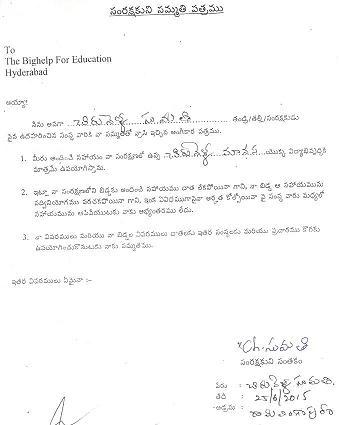 సంరక్షకుని సమ్మతి పత్రము
To
The Bighelp For Education
Hyderabad
అయ్యా!
నేను అనగా సుమతి తండ్రి/తల్లి/సంరక్షకుడు
పైన ఉదహరించిన సంస్థ వారికి నా సమ్మతితో వ్రాసి ఇచ్చిన అంగీకార పత్రము.
1. మీరు అందించే సహాయం నా సంరక్షణలో ఉన్న మానస యొక్క విద్యాభివృద్ధికి
మాత్రమే ఉపయోగిస్తాను.
2. ఇట్లా నా సంరక్షణలోని బిడ్డకు అందించే సహాయము చాత లేకపోయినా గాని, నా బిడ్డ ఆ సహాయమును
సద్వినియోగము పరచకపోయినా గాని, ఇంక ఏవిధముగానైనా అర్హత కోల్పోయినా పై సంస్థ వారు మధ్యలో
సహాయమును ఆపివేయుటకు నాకు అభ్యంతరము లేదు.
3. నా వివరములు మరియు నా బిడ్డల వివరములు దాతలకు ఇతర సంస్థలకు మరియు ప్రచారము కొరకు
ఉపయోగించుకొనుటకు నాకు సమ్మతము.
ఇతర వివరములు ఏమైనా :-
Ch. సుమతి
సంరక్షకుని సంతకం
పేరు : సుమతి
తేది : 25/6/2015